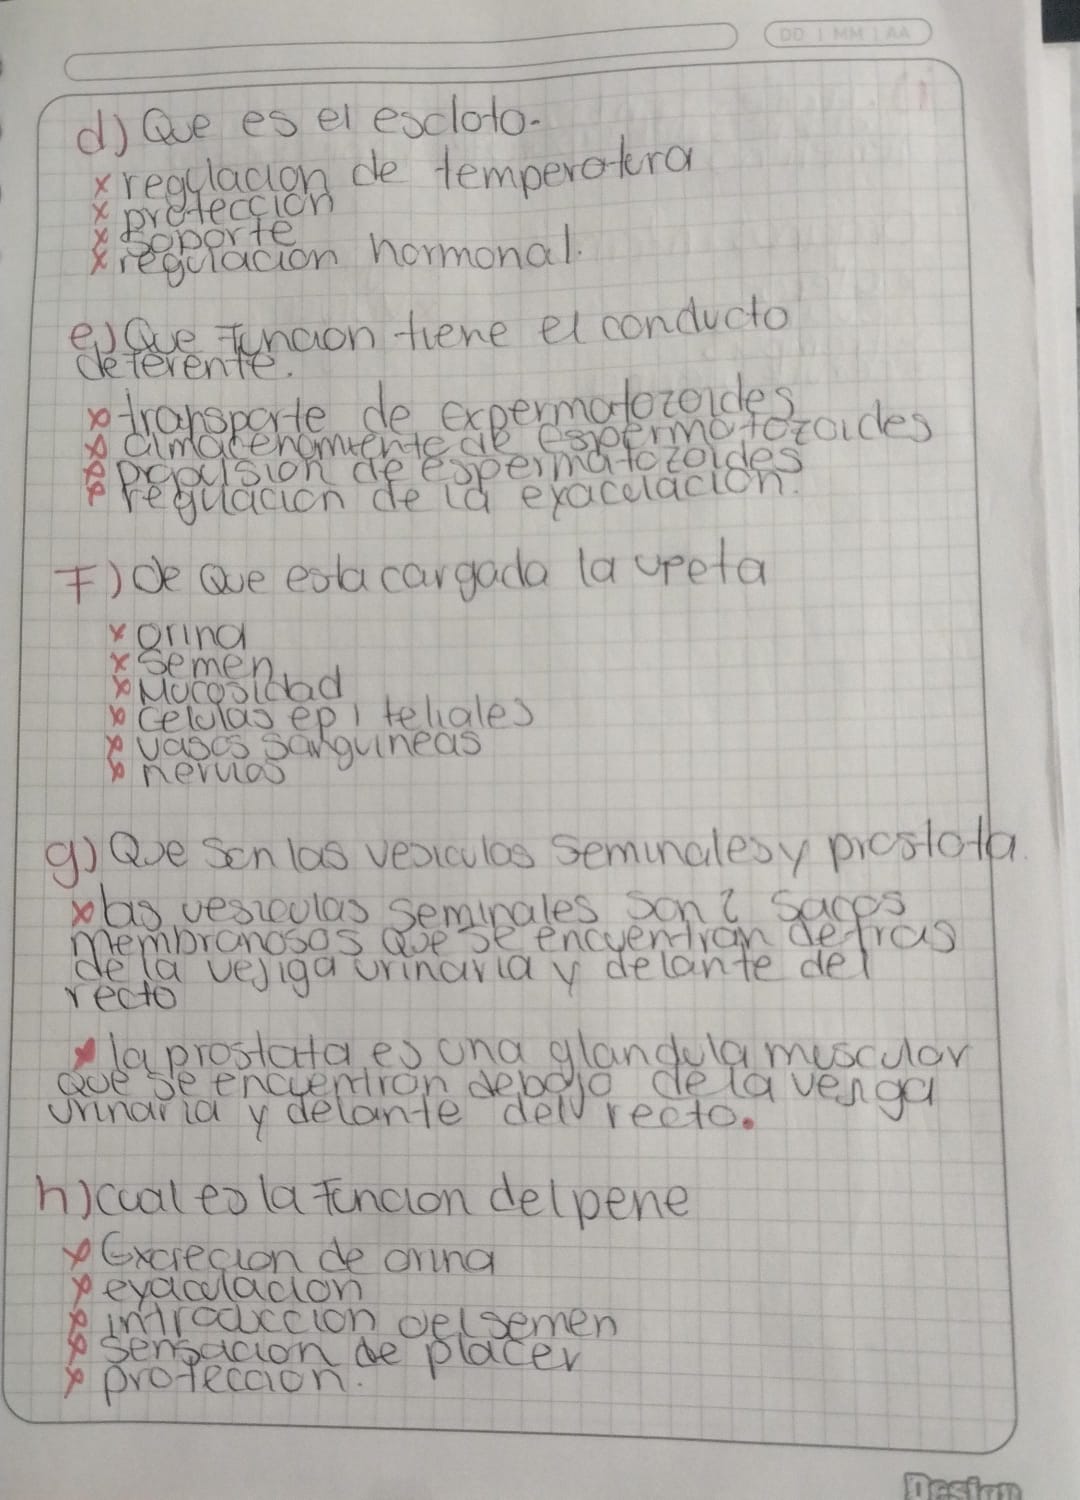 DD | MM | AA
d) Que es el escloto.
x regulacion de temperatura
x proteccion
x soporte
x regulacion hormonal.
e) Que funcion tiene el conducto
deferente.
x transporte de expermatozoides
x almacenamiente de espermatozoides
x propulsion de espermatozoides
x regulacion de la exaculacion.
F) De Que esta cargada la upeta
x orina
x semen
x Mucosidad
x celulas epi teliales
x vasos sanguineas
x nervios
g) Que Son las vesiculas Seminales y prostota.
x las vesiculas seminales son 2 sacos
membranosos Que se encuentran detras
de la vejiga urinaria y delante del
recto
x la prostata es una glandula muscular
Que se encuentran debajo de la vejiga
urinaria y delante del recto.
h) cual es la funcion del pene
x Excrecion de orina
x eyaculacion
x introduccion del semen
x sensacion de placer
x proteccion.
Design